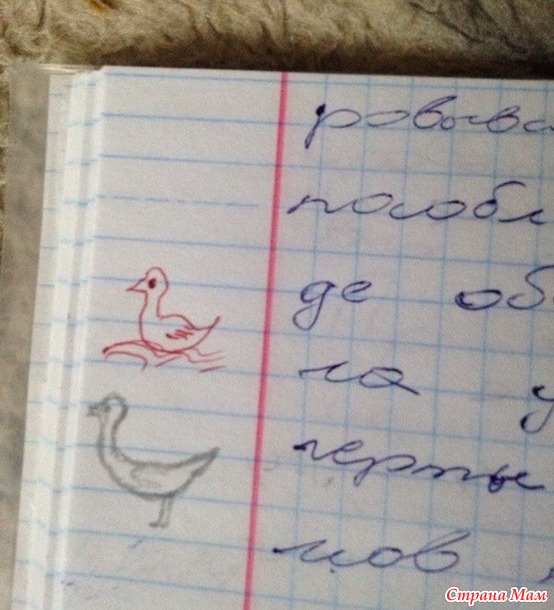 ровыва
пособл
де об
ла у
черты
мов,
Страна Мам